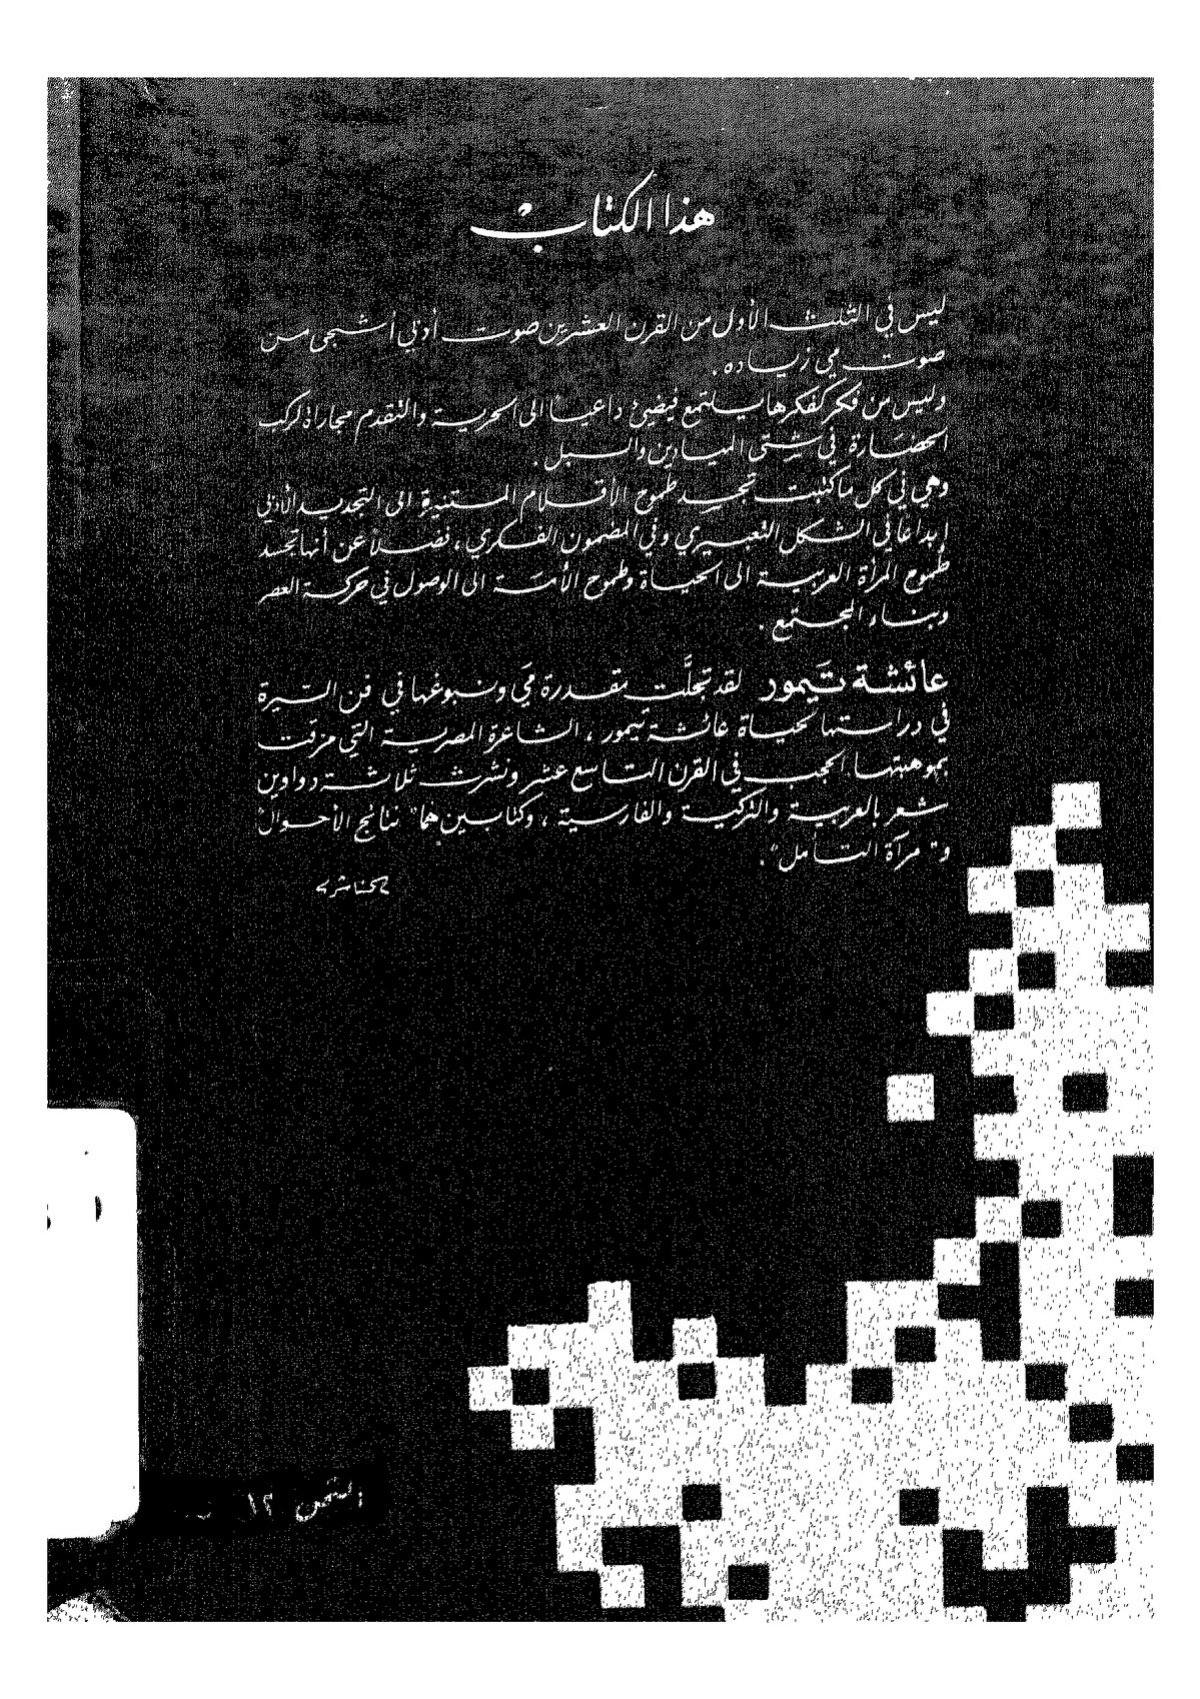 هذا الكتاب
ليس في الثلث الأول من القرن العشرين صوت أدبي أشجى من
صوت مي زياده .
وليس من فكر كفكرها يلتمع فيضيئ داعيا الى الحرية والتقدم مجاراة لركب
الحضارة في شتى الميادين والسبل .
وهي في كل ما كتبت تجسد طموح الأقلام المستنيرة الى التجديد الأدبي
إبداعا في الشكل التعبيري وفي المضمون الفكري ، فضلاً عن أنها تجسد
طموح المرأة العربية الى الحياة وطموح الأمة الى الوصول في حركة العصر
وبناء المجتمع .
عائشة تيمور لقد تجلّت مقدرة مي ونبوغها في فن السيرة
في دراستها لحياة عائشة تيمور ، الشاعرة المصرية التي مزقت
بموهبتها الحجب في القرن التاسع عشر ونشرت ثلاثة دواوين
شعر بالعربية والتركية والفارسية ، وكتابين هما " نتائج الأحوال "
و " مرآة التأمل " .
الناشر
الثمن ١٢